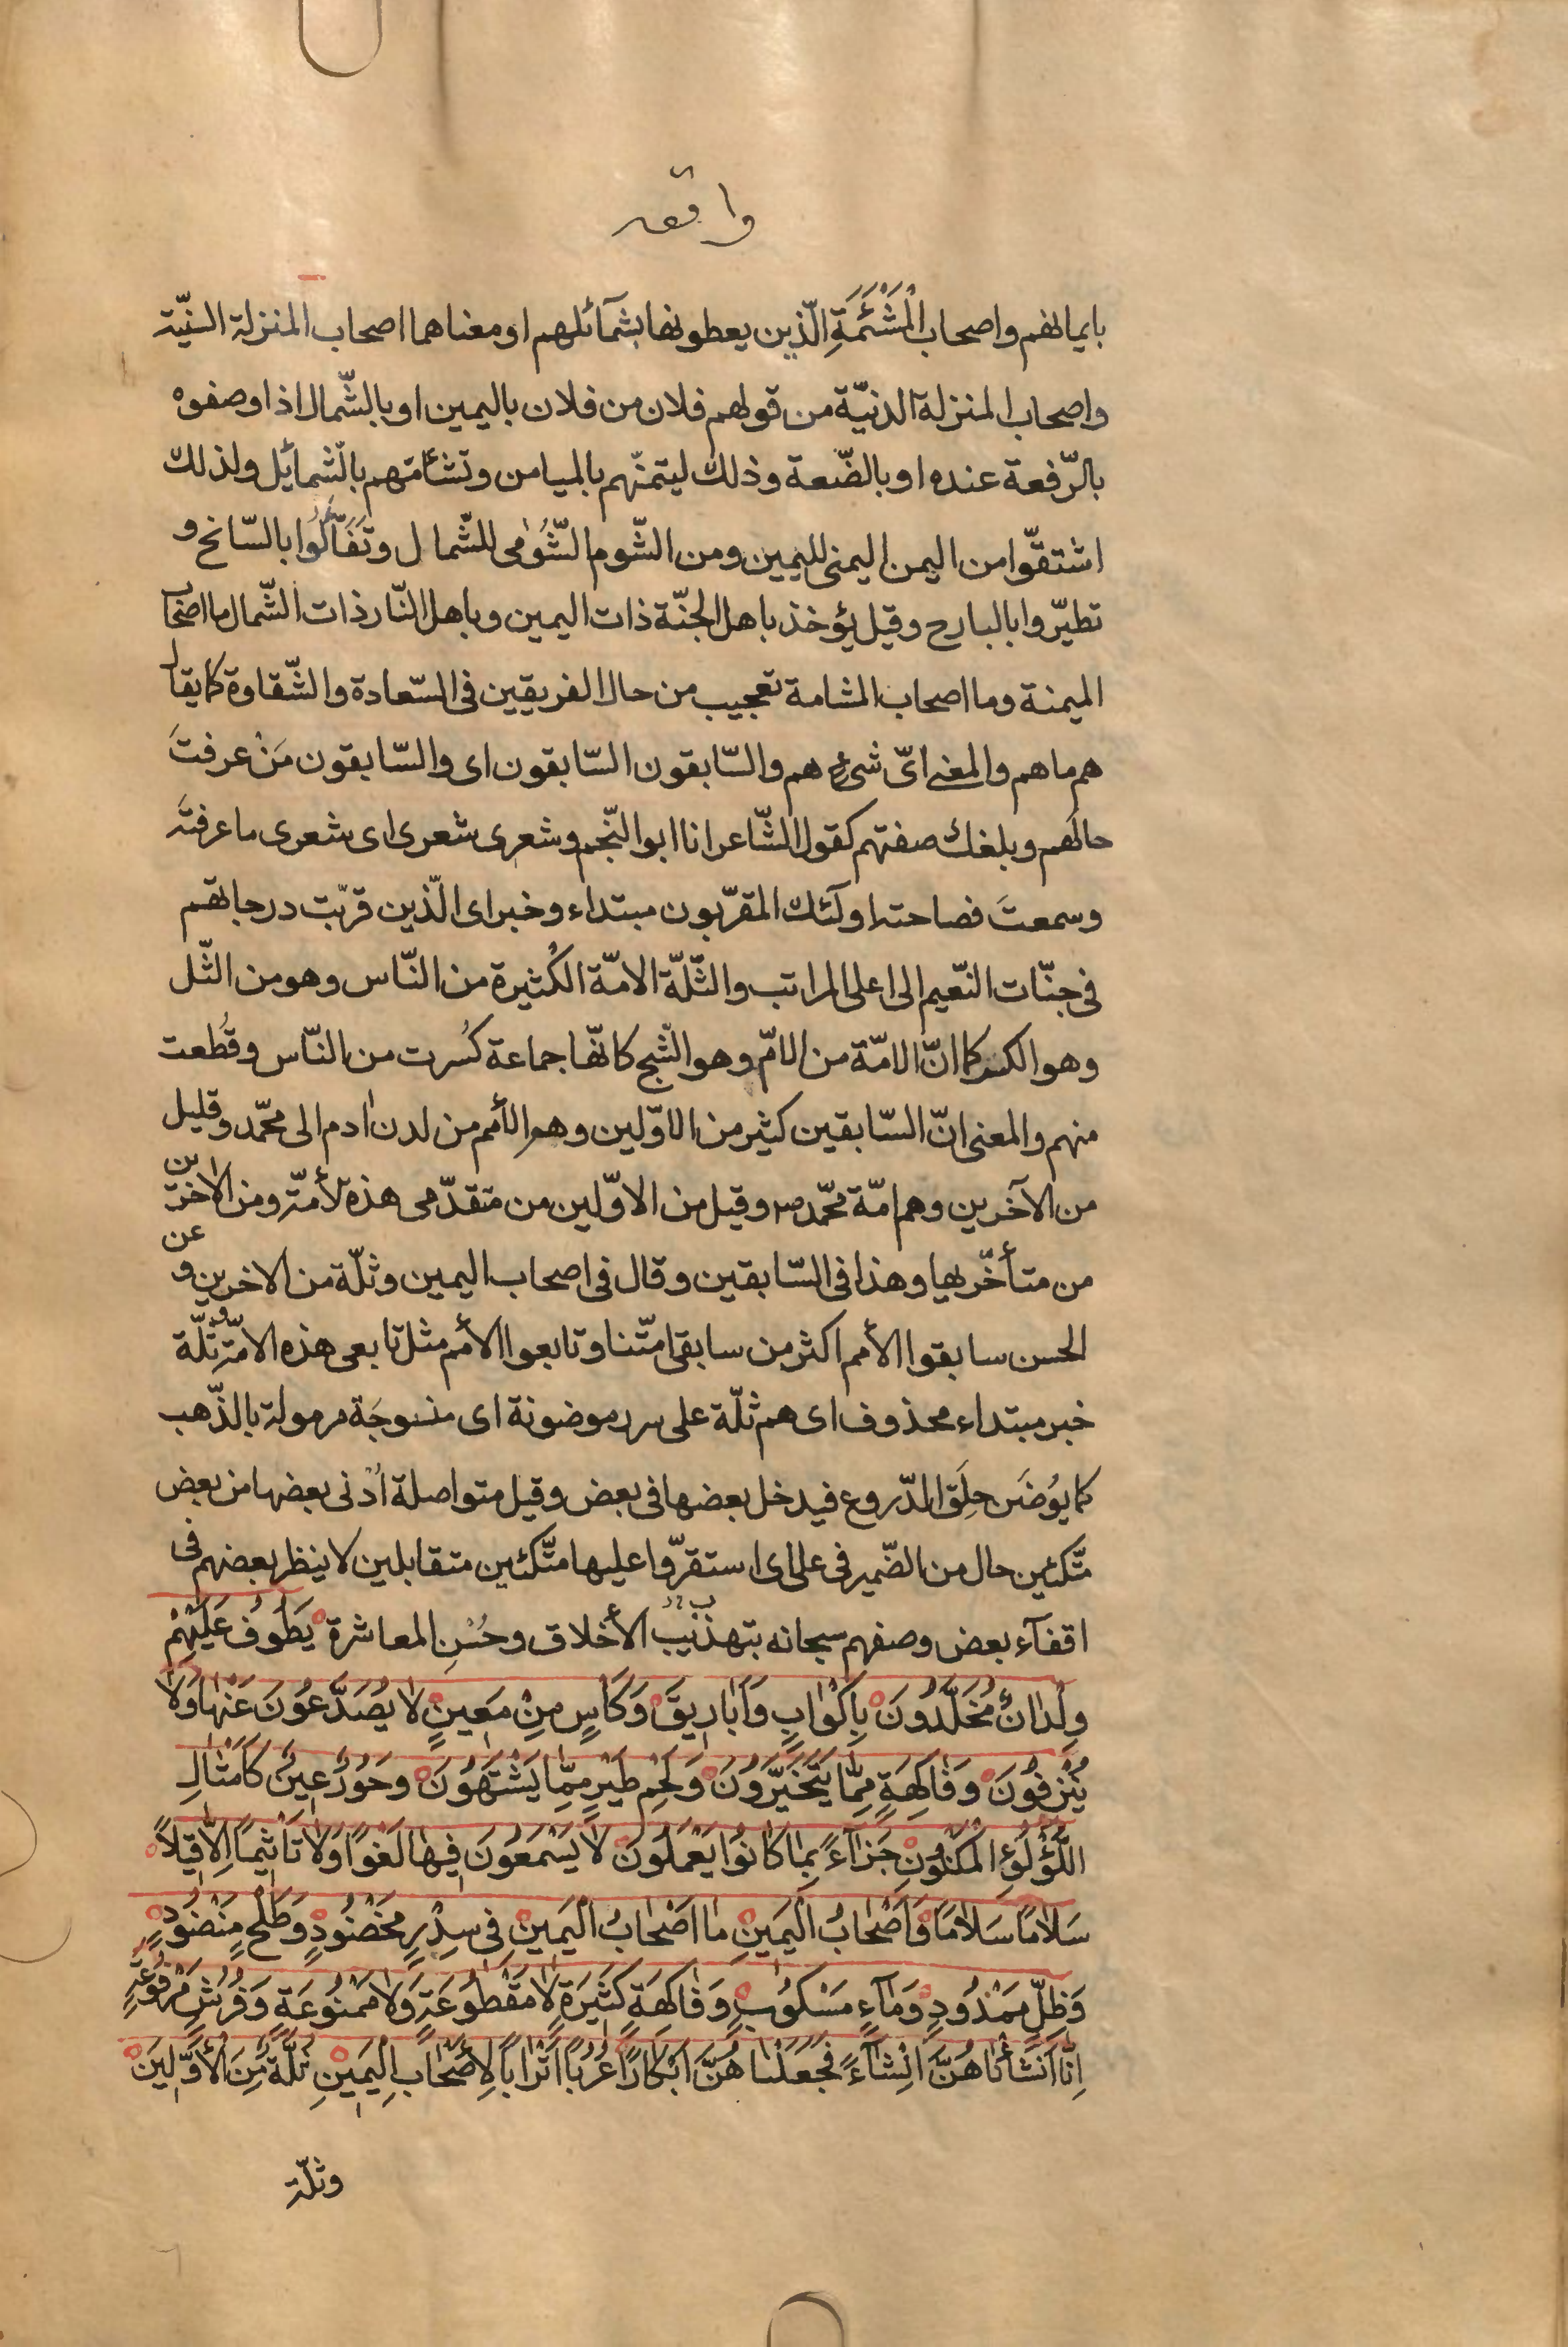 واقعه
بايمانهم واصحاب الْمَشْئَمَةِ الّذين يعطونها بشمآئلهم او معناهما اصحاب المنزلة السّنيّة
واصحاب المنزلة الدنيّة من قولهم فلان من فلان باليمين او بالشّمال اذا وصفوه
بالرّفعة عنده او بالضّعة وذلك ليتمنّهم بالميامن وتشأمّهم بالشّمائل ولذلك
اشتقّوا من اليمن اليمنى لليمين ومن الشّوم الشّؤمى للشّمال وتَفَآَّلُوا بالسّانح و
تطيّروا بالبارح وقيل يؤخذ باهل الجنّة ذات اليمين وباهل النّار ذات الشّمال ما اصحاب
الميمنة وما اصحاب المشامة تعجيب من حال الفريقين فى السّعادة والشّقاوة كما يقال
هم ما هم والمعنى اىّ شىء هم والسّابقون السّابقون اى والسّابقون مَنْ عرفتَ
حالهم وبلغك صفتهم كقول الشّاعر انا ابو النّجم وشعرى شعرى اى شعرى ما عرفته
وسمعتَ فصاحته اولٓئك المقرّبون مبتداء وخبر اى الّذين قرّبت درجاتهم
فى جنّات النّعيم الى اعلى المراتب والثّلّة الامّة الكثيرة من النّاس وهو من الثّل
وهو الكسر كما انّ الامّة من الامّ وهو الشّج كانّها جماعة كُسرت من النّاس وقُطعت
منهم والمعنى انّ السّابقين كثير من الاوّلين وهم الأمم من لدن اٰدم الى محمّد وقليل
من الآخرين وهم امّة محمّد ص وقيل من الاوّلين من متقدّمى هذه الأمّة ومن الاخرين
من متأخّريها وهذا فى السّابقين وقال فى اصحاب اليمين وثلّة من الاخرين و عن
الحسن سابقوا الأمم اكثر من سابقى امّتنا وتابعوا الأمم مثل تابعى هذه الامّة وثلّة
خبر مبتداء محذوف اى هم ثلّة على سرر موضونة اى منسوجَة مرمولة بالذّهب
كما يوُضَن حِلَق الدّروع فيدخل بعضها فى بعض وقيل متواصلة اُدْنى بعضها من بعض
متّكئين حال من الضّمير فى على اى استقرّوا عليها متّكئين متقابلين لا ينظر بعضهم فى
اقفآء بعض وصفهم سبحانه بتهذيب الأخلاق وحُسْنِ المعاشرة يَطُوفُ عَلَيْهِمْ
وِلْدٰانٌ مُخَلَّدُونَ بِاَكْوٰابٍ وَاَبٰارِيقَ وَكَاْسٍ مِنْ مَعِينٍ لا يُصَدَّعُونَ عَنْهٰا وَلاٰ
يُنْزِفُونَ وَفٰاكِهَةٍ مِمّٰا يَتَخَيَّرُونَ وَلَحْمِ طَيْرٍ مِمّٰا يَشْتَهُونَ وَحُورٌ عِينٌ كَاَمْثٰالِ
اللُّؤْلُؤِ الْمَكْنُونِ جَزٰآءً بِمٰا كٰانُوا يَعْمَلُونَ لاٰ يَسْمَعُونَ فِيهٰا لَغْوًا وَلاٰ تَاْثِيمًا اِلاّٰ قِيلاً
سَلاٰمًا سَلاٰمًا وَاَصْحٰابُ الْيَمِينِ مٰا اَصْحٰابُ الْيَمِينِ فِى سِدْرٍ مَخْضُودٍ وَطَلْحٍ مَنْضُودٍ
وَظِلٍّ مَمْدُودٍ وَمٰآءٍ مَسْكُوبٍ وَفٰاكِهَةٍ كَثِيرَةٍ لاٰ مَقْطُوعَةٍ وَلاٰ مَمْنُوعَةٍ وَفُرُشٍ مَرْفُوعَةٍ
اِنّٰا اَنْشَأْنٰاهُنَّ اِنْشٰآءً فَجَعَلْنٰاهُنَّ اَبْكٰارًا عُرُبًا اَتْرٰابًا لِاَصْحٰابِ الْيَمِينِ ثُلَّةٌ مِنَ الْأَوَّلِينَ
وثلّة